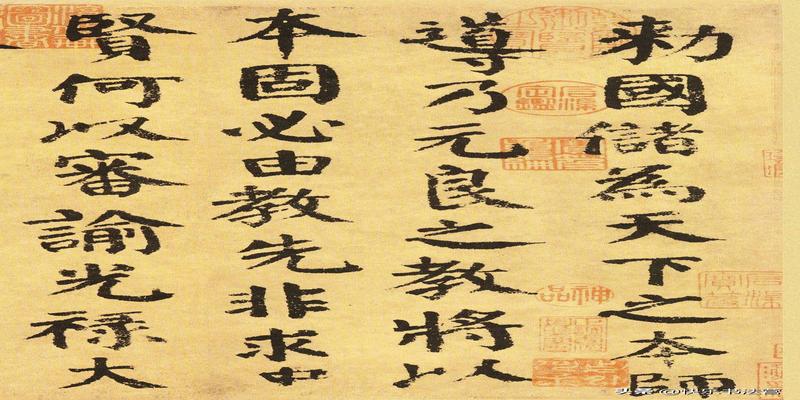 勑國儲為天下之本師
導乃元良之教將以
本固必由教先非求中
賢何以審諭光祿大
神品